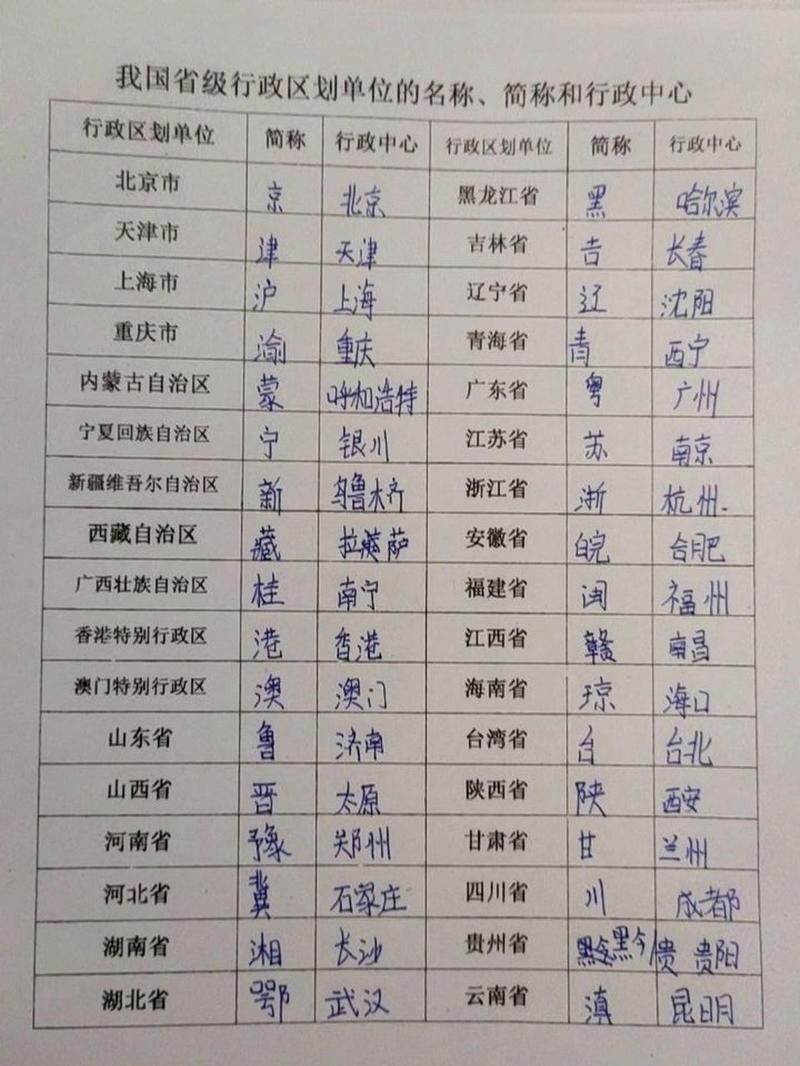 我国省级行政区划单位的名称、简称和行政中心
行政区划单位 简称 行政中心 行政区划单位 简称 行政中心
北京市 京 北京 黑龙江省 黑 哈尔滨
天津市 津 天津 吉林省 吉 长春
上海市 沪 上海 辽宁省 辽 沈阳
重庆市 渝 重庆 青海省 青 西宁
内蒙古自治区 蒙 呼和浩特 广东省 粤 广州
宁夏回族自治区 宁 银川 江苏省 苏 南京
新疆维吾尔自治区 新 乌鲁木齐 浙江省 浙 杭州.
西藏自治区 藏 拉萨 安徽省 皖 合肥
广西壮族自治区 桂 南宁 福建省 闽 福州
香港特别行政区 港 香港 江西省 赣 南昌
澳门特别行政区 澳 澳门 海南省 琼 海口
山东省 鲁 济南 台湾省 台 台北
山西省 晋 太原 陕西省 陕 西安
河南省 豫 郑州 甘肃省 甘 兰州
河北省 冀 石家庄 四川省 川 成都
湖南省 湘 长沙 贵州省 黔 黔 贵 贵阳
湖北省 鄂 武汉 云南省 滇 昆明